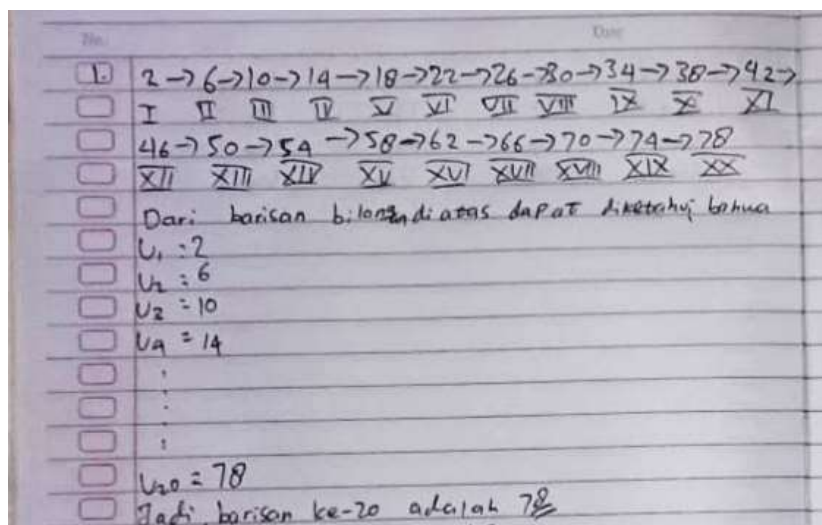 No. Date
1. 2 → 6 → 10 → 14 → 18 → 22 → 26 → 30 → 34 → 38 → 42 →
I II III IV V VI VII VIII IX X XI
46 → 50 → 54 → 58 → 62 → 66 → 70 → 74 → 78
XII XIII XIV XV XVI XVII XVIII XIX XX
Dari barisan bilangan di atas dapat diketahui bahwa
U₁ : 2
U₂ : 6
U₃ = 10
U₄ = 14
:
:
:
U₂₀ = 78
Jadi barisan ke-20 adalah 78